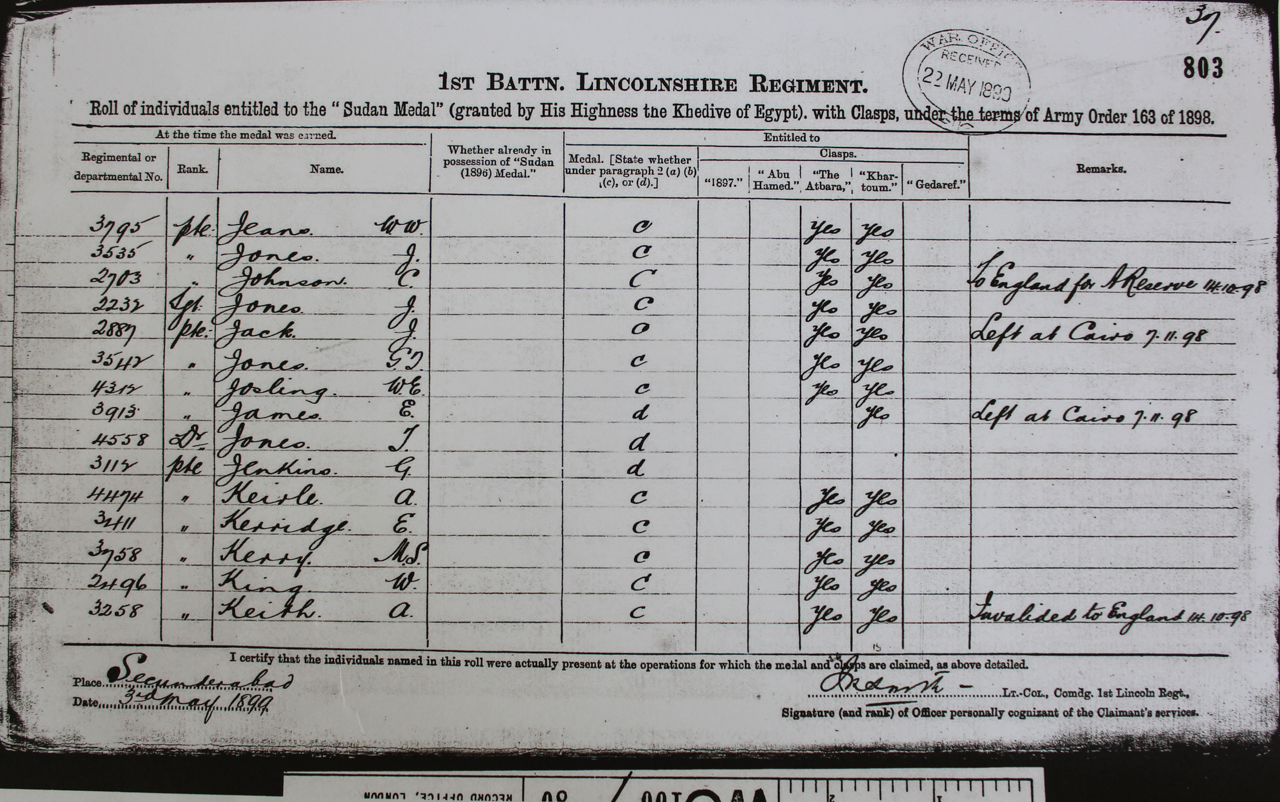 37.
803
WAR OFFICE
RECEIVED
22 MAY 1899
1ST BATTN. LINCOLNSHIRE REGIMENT.
Roll of individuals entitled to the "Sudan Medal" (granted by His Highness the Khedive of Egypt). with Clasps, under the terms of Army Order 163 of 1898.
At the time the medal was earned.
Regimental or departmental No.
Rank.
Name.
Whether already in possession of "Sudan (1896) Medal."
Entitled to
Medal. [State whether under paragraph 2 (a) (b) (c), or (d).]
Clasps.
"1897."
"Abu Hamed."
"The Atbara,"
"Khar-toum."
"Gedaref."
Remarks.
3795 pte. Jeans. W.W. c Yes Yes
3535 " Jones. J. c Yes Yes
2703 " Johnson. C. C Yes Yes To England for A Reserve 14.10.98
2232 Sgt. Jones. J. C Yes Yes
2887 pte. Jack. J. Yes Yes Left at Cairo 7.11.98
3542 " Jones. G.T. c Yes Yes
4312 " Josling. W.E. c Yes Yes
3913 " James. E. d Yes Left at Cairo 7.11.98
4558 Dr. Jones. T. d
3112 pte Jenkins. G. d
4474 " Keirle. A. c Yes Yes
3411 " Kerridge. E. C Yes Yes
3758 " Kerry. M.S. c Yes Yes
2496 " King W. C Yes Yes
3258 " Keith. A. c Yes Yes Invalided to England 14.10.98
I certify that the individuals named in this roll were actually present at the operations for which the medal and clasps are claimed, as above detailed.
Place Secunderabad
Date 3rd May 1899
LT.-COL., Comdg. 1st Lincoln Regt.,
Signature (and rank) of Officer personally cognizant of the Claimant's services.
RECORD OFFICE, LONDON
1
2